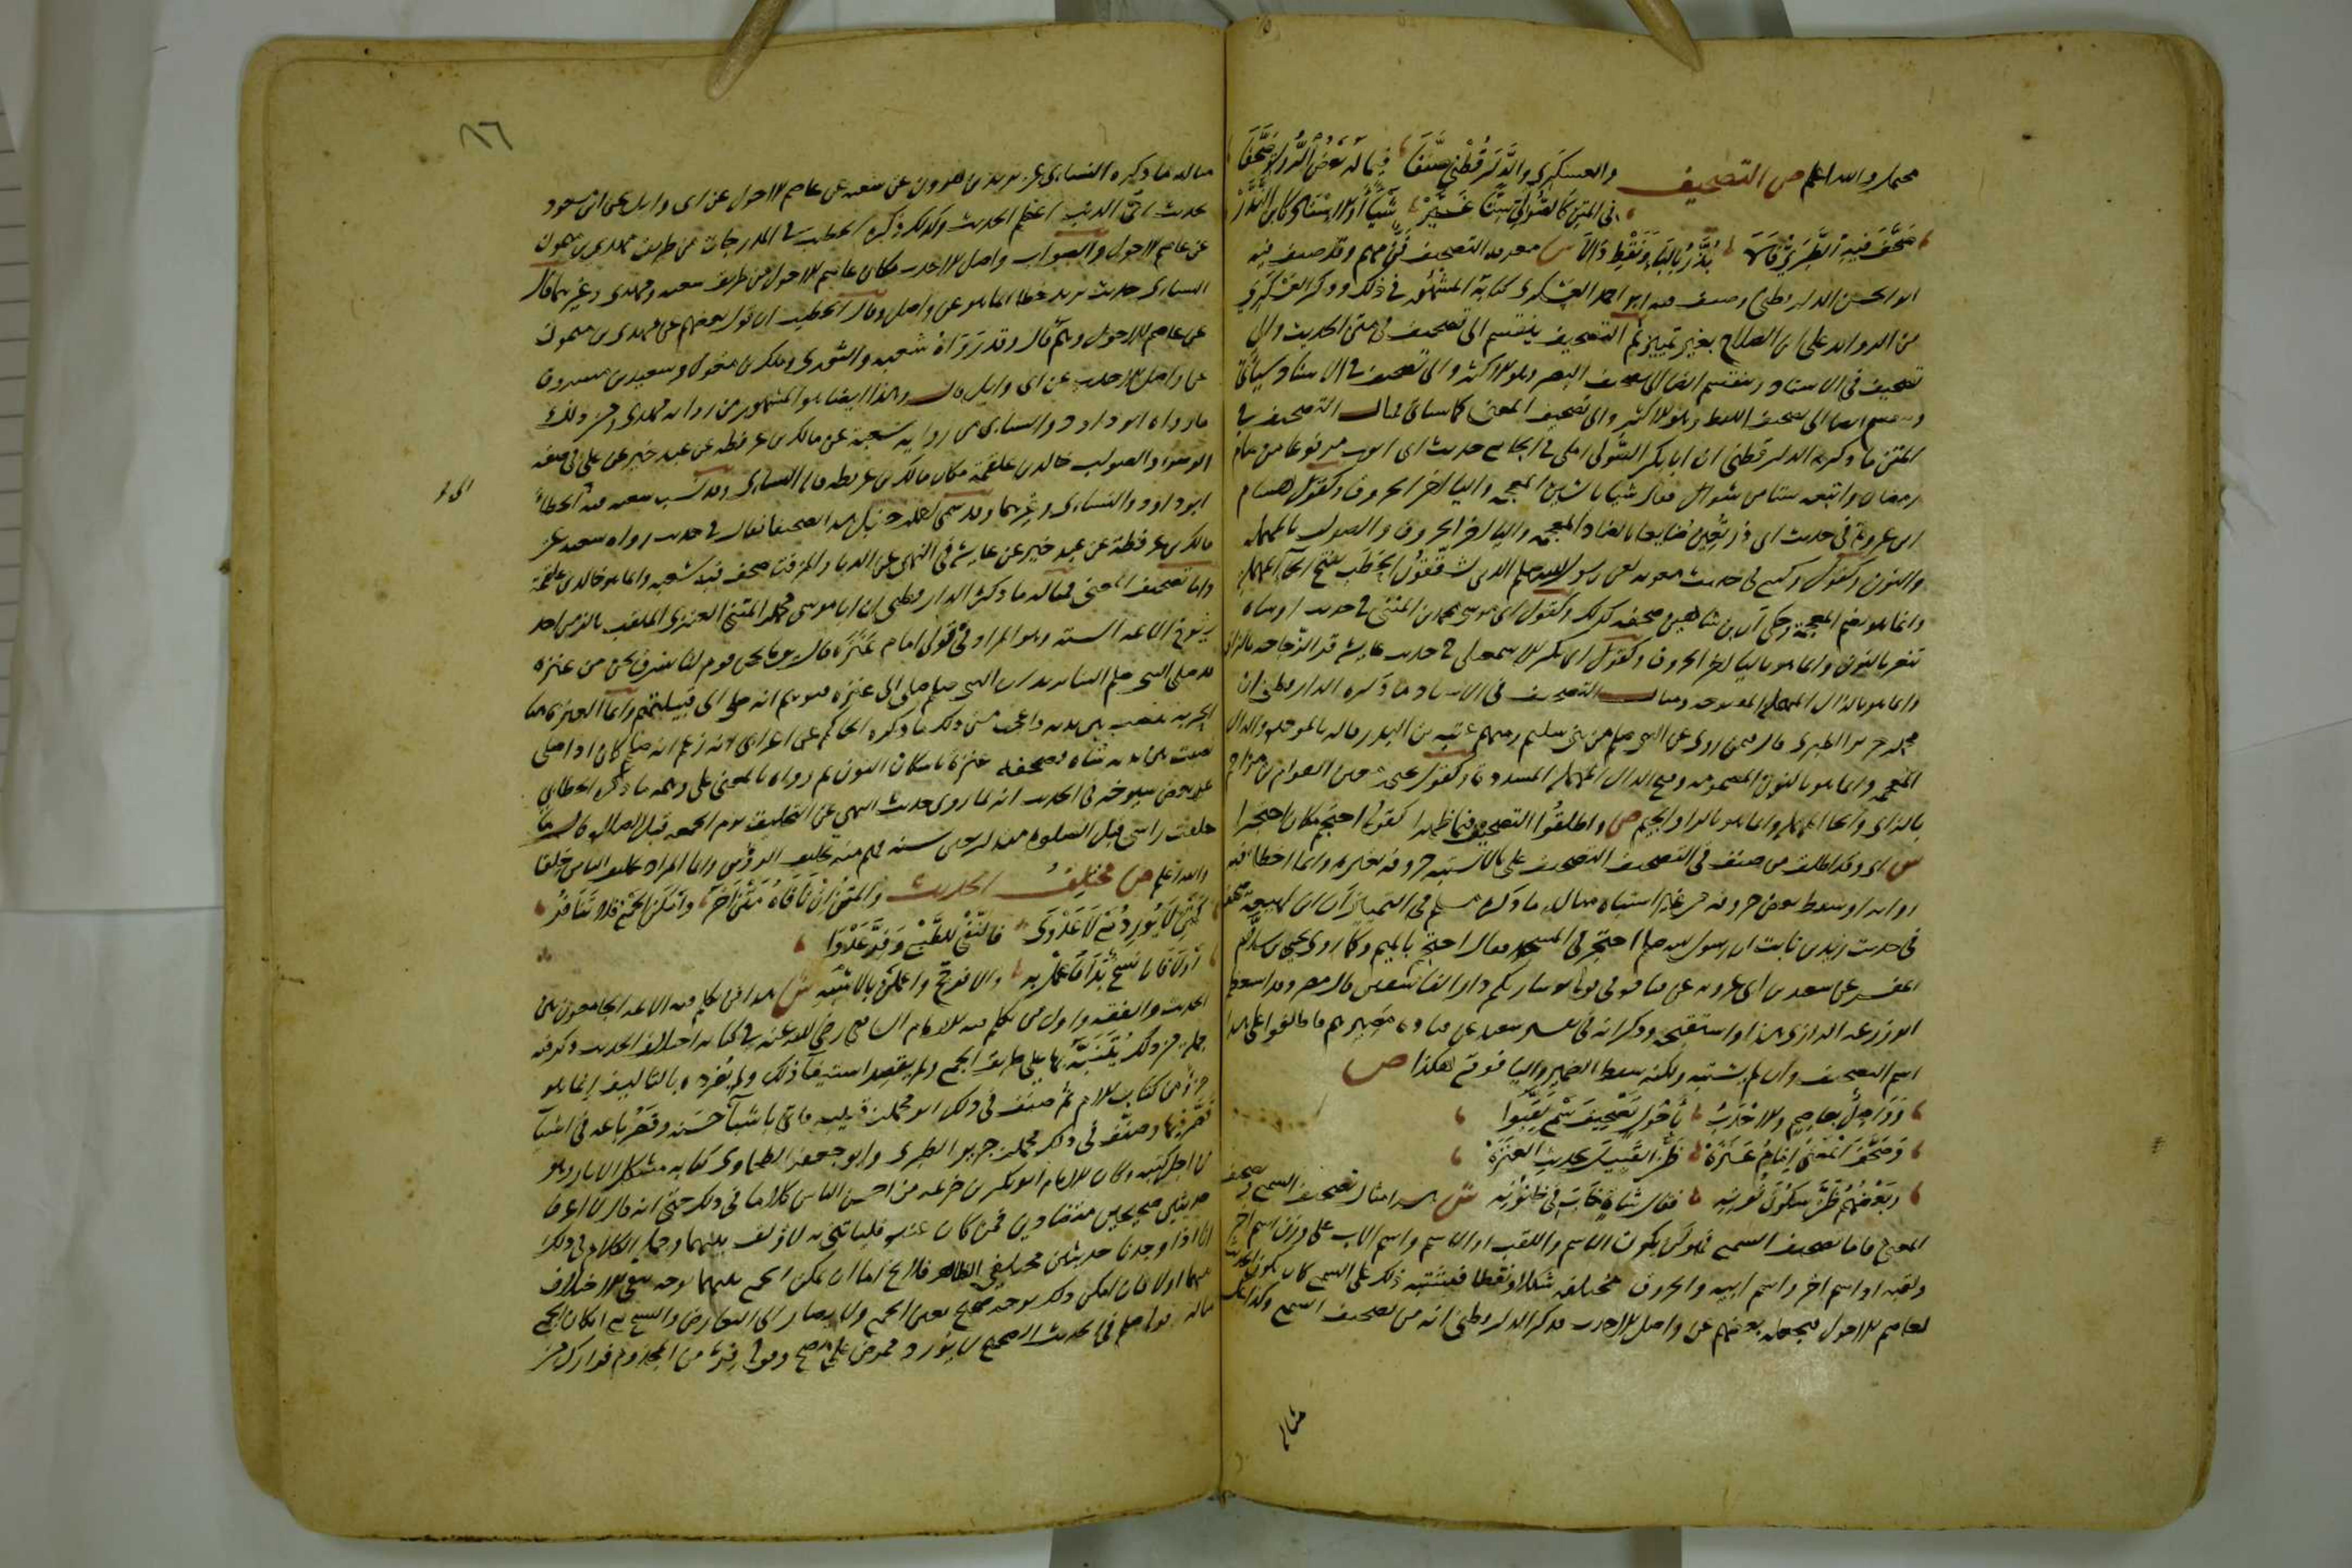 محتملة والله اعلم ص التصحيف والعسكري والدارقطني صنفا فيما له بعض الرواة صحفا
في المتن كالصولي ستا غير شيئا او الاسناد كابن الندر
صحف فيه الطبري قالا بذر بالباء ونقط ذالا ش معرفة التصحيف فن مهم وقد صنف فيه
ابو الحسن الدارقطني وصنف فيه ابو احمد العسكري كتابه المشهور في ذلك وذكر العسكري
من الزوايد على ابن الصلاح بغير تمييز ثم التصحيف ينقسم الى تصحيف في متن الحديث والى
تصحيف في الاسناد وينقسم ايضا الى تصحيف البصر وهو الاكثر والى تصحيف السمع كما سيأتي
وينقسم ايضا الى تصحيف اللفظ وهو الاكثر والى تصحيف المعنى كما سيأتي فمثال التصحيف في
المتن ما ذكره الدارقطني ان ابا بكر الصولي املى في الجامع حديث ابي ايوب مرفوعا من صام
رمضان واتبعه ستا من شوال فقال شيئا بالشين المعجمة واليا اخر الحروف وكقول هشام
ابن عروة في حديث ابي ذر تعين ضايعا بالضاد المعجمة واليا اخر الحروف والصواب بالمهملة
والنون وكقول وكيع في حديث معوية لعن رسول الله صلعم الذين يشققون الحطب بفتح الحاء المهملة
وانما هو بضم المعجمة وحكى ان ابن شاهين صحفه كذلك وكقول ابي موسى محمد بن المثنى في حديث او شاة
تنعر بالنون وانما هو باليا اخر الحروف وكقول ابي بكر الاسمعيلي في حديث عايشة قر الزجاجة بالزاي
وانما هو بالدال المهملة المفتوحة ومثال التصحيف في الاسناد ما ذكره الدارقطني ان
محمد بن جرير الطبري قال فيمن روى عن النبي صلعم من بني سليم ومنهم عتبة بن البذر قاله بالموحدة والذال
المعجمة وانما هو بالنون المضمومة وفتح الدال المهملة المشددة وكقول يحيى بن معين العوام بن مزاحم
بالزاي والحا المهملة وانما هو بالرا والجيم ص واطلقوا التصحيف فيما ظهرا كقوله احتجم مكان احتجرا
ش اي وقد اطلق من صنف في التصحيف التصحيف على ما لا تشتبه حروفه بغيره وانما اخطا فيه
راويه او سقط بعض حروفه من غير اشتباه مثاله ما ذكره مسلم في التمييز ان ابن لهيعة صحف
في حديث زيد بن ثابت ان رسول الله صلعم احتجر في المسجد فقال احتجم بالميم وكما روى يحيى بن سلام
المفسر عن سعيد بن ابي عروبة عن قتادة في قوله تعالى ساريكم دار الفاسقين قال مصر وقد استعظم
ابو زرعة الرازي هذا واستقبحه وذكر انه في تفسير سعيد عن قتادة مصيرهم فاطلقوا على هذا
اسم التصحيف وان لم يشتبه ولكنه سقط الضمير واليا فوقع هكذا ص
وواصل بعاصم والاحدب باحول تصحيف سمع لقبوا
وصحف المعنى امام عنزة ظن القبيل بحديث العنزة
وبعضهم ظن سكون نونه فقال شاة خاب في ظنونه ش هذا مثال لتصحيف السمع وتصحيف
المعنى فاما تصحيف السمع فهو ان يكون الاسم واللقب او الاسم واسم الاب على وزن اسم اخر
ولقبه او اسم اخر واسم ابيه والحروف مختلفة شكلا ونقطا فيشتبه ذلك على السمع كان يكون الحديث
لعاصم الاحول فيجعله بعضهم عن واصل الاحدب فذكر الدارقطني انه من تصحيف السمع وكذا عكسه
مثاله
٨٦
مثاله ما ذكره النسائي عن يزيد بن هرون عن شعبة عن عاصم الاحول عن ابي وايل عن ابن مسعود
حديث اي الذنب اعظم الحديث وكذلك ذكره الخطيب في المدرجات من طريق مهدي بن ميمون
عن عاصم الاحول والصواب واصل الاحدب مكان عاصم الاحول من طريق شعبة ومهدي وغيرهما قال
النسائي حديث يزيد خطا انما هو عن واصل وقال الخطيب ان قول بعضهم عن مهدي بن ميمون
عن عاصم الاحول وهم قال وقد رواه شعبة والثوري ومالك بن مغول وسعيد بن مسروق
عن واصل الاحدب عن ابي وايل قال وهذا ايضا هو المشهور من رواية مهدي ومن ذلك
ما رواه ابو داود والنسائي من رواية شعبة عن مالك بن عرفطة عن عبد خير عن علي في صفة
الوضوء والصواب خالد بن علقمة مكان مالك بن عرفطة قاله النسائي وقد نسب شعبة فيه الى الخطا
ابو داود والنسائي وغيرهما وقد سمى احمد بن حنبل هذا تصحيفا فقال في حديث رواه شعبة عن
مالك بن عرفطة عن عبد خير عن عايشة في النهي عن الدبا والمزفت صحف فيه شعبة وانما هو خالد بن علقمة
واما تصحيف المعنى فمثاله ما ذكره الدارقطني ان ابا موسى محمد بن المثنى العنزي الملقب بالزمن احد
شيوخ الائمة الستة وهو المراد في قولي امام عنزة قال يوما نحن قوم لنا شرف نحن من عنزة
قد صلى النبي صلعم الينا يريد ان النبي صلعم صلى الى عنزة فتوهم انه صلى الى قبيلتهم وانما العنزة هنا
الحربة تنصب بين يديه واعجب من ذلك ما ذكره الحاكم عن اعرابي انه زعم انه صلعم كان اذا صلى
نصبت بين يديه شاة فصحفه عنزة باسكان النون ثم رواه بالمعنى على وهمه ما ذكره الخطابي
عن بعض شيوخه في الحديث انه لما روى حديث النهي عن التحليق يوم الجمعة قبل الصلوة قال ما
حلقت راسي قبل الصلوة منذ اربعين سنة فهم منه تحليق الرؤس وانما المراد تحليق الناس حلقا
والله اعلم ص مختلف الحديث والمتن ان نافاه متن اخر وامكن الجمع فلا تنافر
كمتن لا يورد مع لا عدوى فالنفي للطبع وفر عدوا
اولا فان نسخ بدا فاعمل به او لا فرجح واعملن بالاشبه ش هذا فن تكلم فيه الائمة الجامعون بين
الحديث والفقه واول من تكلم فيه الامام الشافعي رضي الله عنه في كتابه اختلاف الحديث وذكر فيه
جملة من ذلك يتنبه بها على طريق الجمع ولم يقصد استيفاء ذلك ولم يفرده بالتاليف انما هو
جزء من كتاب الام ثم صنف في ذلك ابو محمد بن قتيبة فاتى باشياء حسنة وقصر باعه في اشياء
قصر فيها وصنف في ذلك محمد بن جرير الطبري وابو جعفر الطحاوي كتابه مشكل الاثار وهو
من اجل كتبه وكان الامام ابو بكر بن خزيمة من احسن الناس كلاما في ذلك حتى انه قال لا اعرف
حديثين صحيحين متضادين فمن كان عنده فلياتني به لاؤلف بينهما وجملة الكلام في ذلك
انا اذا وجدنا حديثين مختلفي الظاهر فلا يخ اما ان يمكن الجمع بينهما بوجه ينفي الاختلاف
بينهما او لا فان امكن ذلك بوجه صحيح تعين الجمع ولا يصار الى التعارض والنسخ مع امكان الجمع
مثاله قوله صلعم في الحديث الصحيح لا يورد ممرض على مصح وقوله فر من المجذوم فرارك من